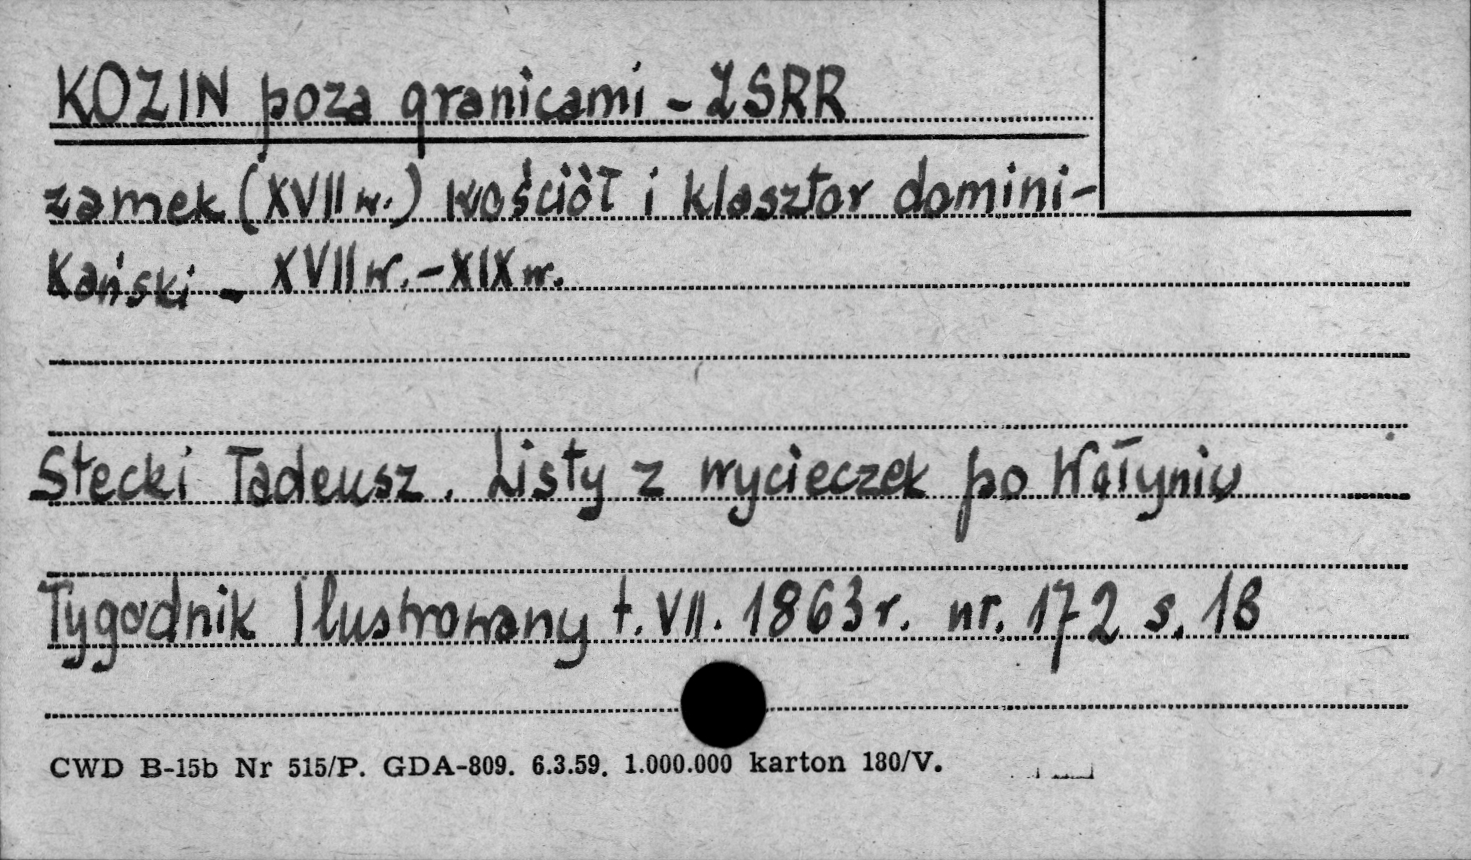 KOZIN poza granicami - ZSRR
zamek (XVII w.) kościół i klasztor domini-
kański - XVII w. - XIX w.
Stecki Tadeusz. Listy z wycieczek po Wołyniu
Tygodnik Ilustrowany t. VII. 1863 r. nr. 172 s. 18
CWD B-15b Nr 515/P. GDA-809. 6.3.59. 1.000.000 karton 180/V.